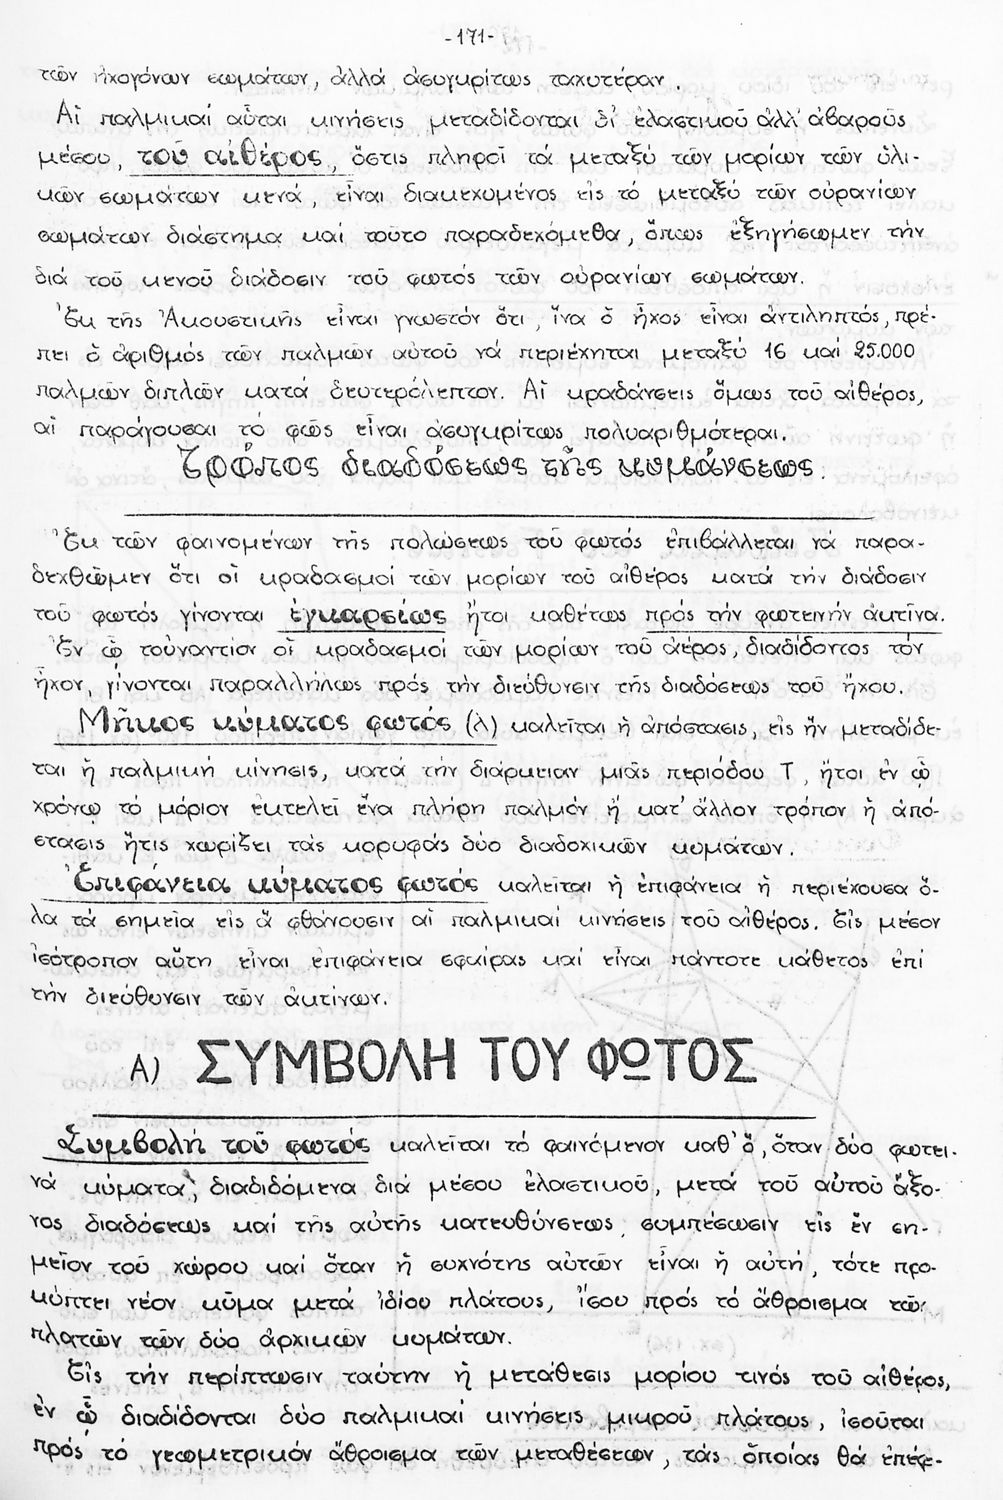 -171-
τῶν ἠχογόνων σωμάτων, ἀλλά ἀσυγκρίτως ταχυτέραν.
Αἱ παλμικαί αὗται κινήσεις μεταδίδονται δι' ἐλαστικοῦ ἀλλ' ἀβαροῦς
μέσου, τοῦ αἰθέρος, ὅστις πληροῖ τά μεταξύ τῶν μορίων τῶν ὑλι-
κῶν σωμάτων κενά, εἶναι διακεχυμένος εἰς τό μεταξύ τῶν οὐρανίων
σωμάτων διάστημα καί τοῦτο παραδεχόμεθα, ὅπως ἐξηγήσωμεν τήν
διά τοῦ κενοῦ διάδοσιν τοῦ φωτός τῶν οὐρανίων σωμάτων.
Ἐκ τῆς Ἀκουστικῆς εἶναι γνωστόν ὅτι, ἵνα ὁ ἦχος εἶναι ἀντιληπτός, πρέ-
πει ὁ ἀριθμός τῶν παλμῶν αὐτοῦ νά περιέχηται μεταξύ 16 καί 25.000
παλμῶν διπλῶν κατά δευτερόλεπτον. Αἱ κραδάνσεις ὅμως τοῦ αἰθέρος,
αἱ παράγουσαι τό φῶς εἶναι ἀσυγκρίτως πολυαριθμότεραι.
Τρόπος διαδόσεως τῆς κυμάνσεως.
Ἐκ τῶν φαινομένων τῆς πολώσεως τοῦ φωτός ἐπιβάλλεται νά παρα-
δεχθῶμεν ὅτι οἱ κραδασμοί τῶν μορίων τοῦ αἰθέρος κατά τήν διάδοσιν
τοῦ φωτός γίνονται ἐγκαρσίως ἤτοι καθέτως πρός τήν φωτεινήν ἀκτῖνα.
Ἐν ᾧ τοὐναντίον οἱ κραδασμοί τῶν μορίων τοῦ ἀέρος, διαδίδοντος τόν
ἦχον, γίνονται παραλλήλως πρός τήν διεύθυνσιν τῆς διαδόσεως τοῦ ἤχου.
Μῆκος κύματος φωτός (λ) καλεῖται ἡ ἀπόστασις, εἰς ἥν μεταδίδε-
ται ἡ παλμική κίνησις, κατά τήν διάρκειαν μιᾶς περιόδου Τ, ἤτοι ἐν ᾧ
χρόνῳ τό μόριον ἐκτελεῖ ἕνα πλήρη παλμόν ἤ κατ' ἄλλον τρόπον ἡ ἀπό-
στασις ἥτις χωρίζει τάς κορυφάς δύο διαδοχικῶν κυμάτων.
Ἐπιφάνεια κύματος φωτός καλεῖται ἡ ἐπιφάνεια ἡ περιέχουσα ὅ-
λα τά σημεῖα εἰς ἅ φθάνουσιν αἱ παλμικαί κινήσεις τοῦ αἰθέρος. Εἰς μέσον
ἰσότροπον αὕτη εἶναι ἐπιφάνεια σφαίρας καί εἶναι πάντοτε κάθετος ἐπί
τήν διεύθυνσιν τῶν ἀκτίνων.
Α) ΣΥΜΒΟΛΗ ΤΟΥ ΦΩΤΟΣ
Συμβολή τοῦ φωτός καλεῖται τό φαινόμενον καθ' ὅ, ὅταν δύο φωτει-
νά κύματα, διαδιδόμενα διά μέσου ἐλαστικοῦ, μετά τοῦ αὐτοῦ ἄξο-
νος διαδόσεως καί τῆς αὐτῆς κατευθύνσεως, συμπέσωσιν εἰς ἕν ση-
μεῖον τοῦ χώρου καί ὅταν ἡ συχνότης αὐτῶν εἶναι ἡ αὐτή, τότε προ-
κύπτει νέον κῦμα μετά ἰδίου πλάτους, ἴσου πρός τό ἄθροισμα τῶν
πλατῶν τῶν δύο ἀρχικῶν κυμάτων.
Εἰς τήν περίπτωσιν ταύτην ἡ μετάθεσις μορίου τινός τοῦ αἰθέρος,
ἐν ᾧ διαδίδονται δύο παλμικαί κινήσεις μικροῦ πλάτους, ἰσοῦται
πρός τό γεωμετρικόν ἄθροισμα τῶν μεταθέσεων, τάς ὁποίας θά ἐπέφε-